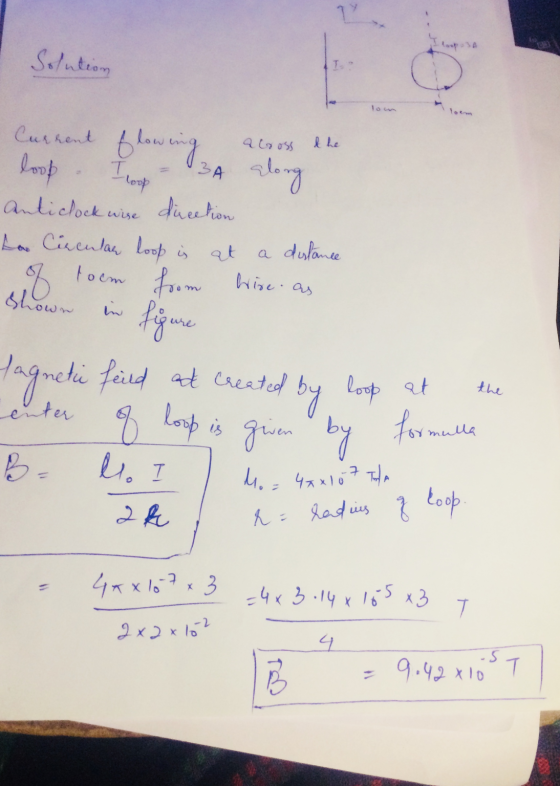 Solution
y
I =
I loop = 3A
10cm
10cm
Current flowing across the
loop. I loop = 3A along
anticlockwise direction
Circular loop is at a distance
of 10cm from wire. as
shown in figure
Magnetic feild at created by loop at the
Center of loop is given by formulla
B = μ₀ I / 2r
μ₀ = 4π×10⁻⁷ T/A
r = radius of loop.
= 4π×10⁻⁷ × 3 / 2×2×10⁻² = 4×3.14×10⁻⁵×3 / 4 T
B⃗ = 9.42×10⁻⁵ T